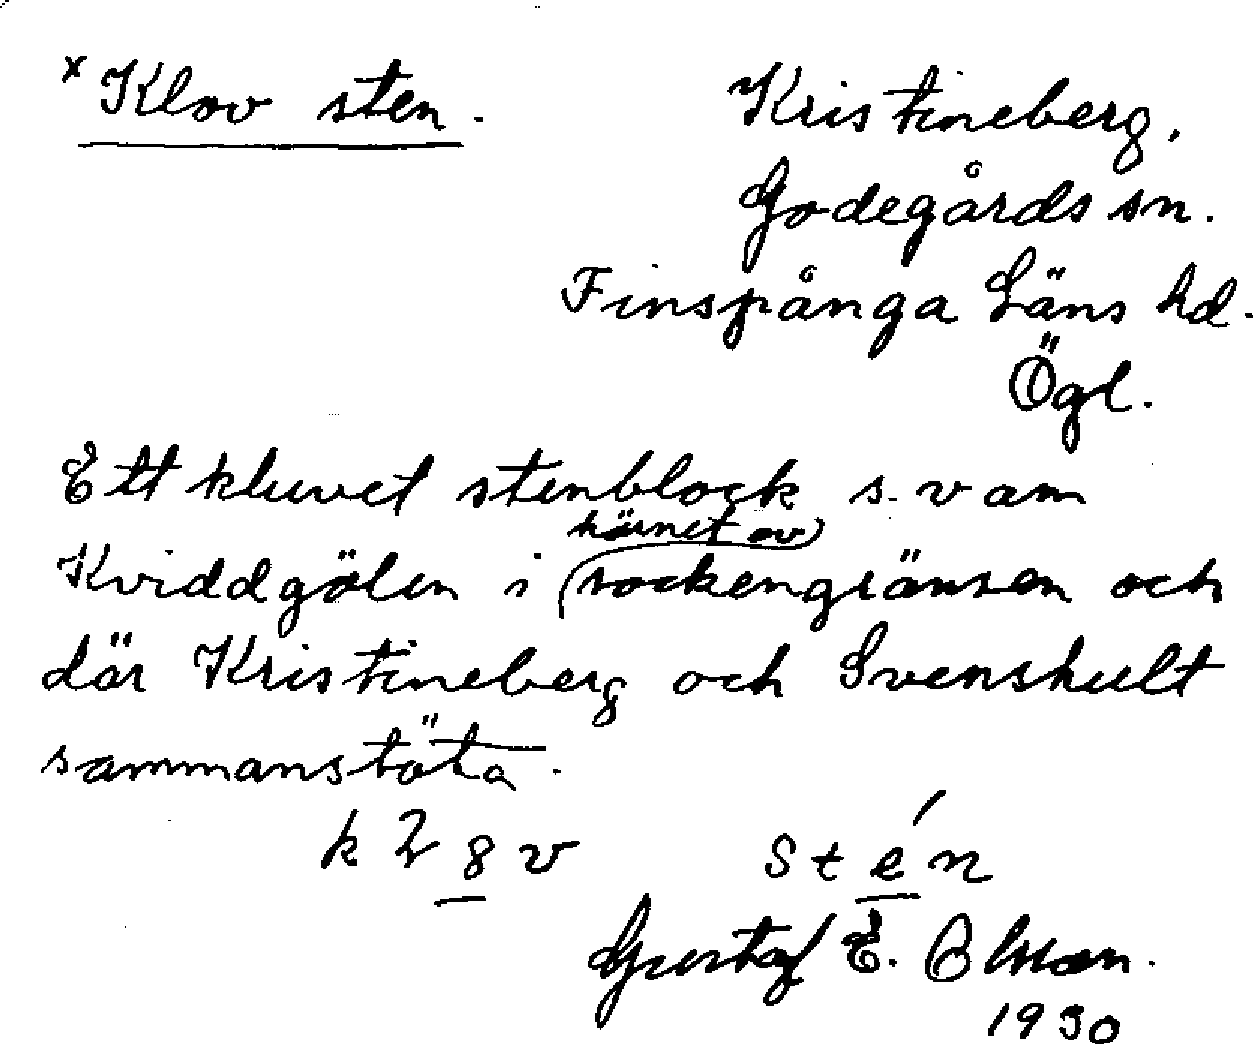 x Klov sten.
Kristineberg.
Godegårds sn.
Finspånga Läns hd.
Ögl.
Ett kluvet stenblock s. v am
hörnet av
Kviddgölen i sockengränsen och
där Kristineberg och Svenshult
sammanstöta.
k 2 8 v stén
Gustaf E. Olsson.
1930